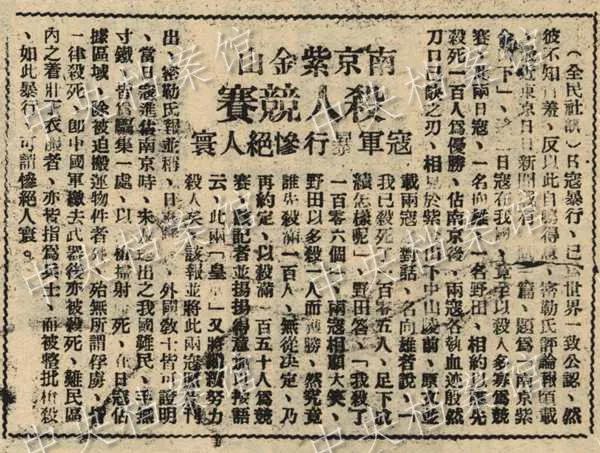 南京紫金山
殺人競賽
寇軍暴行慘絕人寰
(全民社訊)日寇暴行、已爲世界一致公認、然
彼不知自羞、反以此自鳴得意、密勒氏評論報頃載
最近東京日日新聞載有一篇、題爲南京紫
金山下」、日寇在我國、竟至以殺人多寡爲競
賽、此兩日寇、一名向雄一名野田、相約以能先
殺死一百人爲優勝、佔南京後、兩寇各執血迹殷然
刀口已缺之刃、相見於紫金山下中山陵前、原文並
載兩寇對話、名向雄者說、「
我已殺死了一百零五人、足下成
績怎樣呢」、野田答、「我殺了
一百零六個」、兩寇相顧大笑、
野田以多殺一人而獲勝、然究竟
誰先殺滿一百人、無從決定、乃
再約定、以殺滿一百五十人爲競
賽、該記者並揚揚得意接語
云、此兩「皇軍」又將繼續努力
殺人矣、該報並將此兩寇照片刊
出、密勒氏報並稱、日寇、外國敎士皆可證明
、當日寇進佔南京時、未及逃出之我國難民、手無
寸鐵、皆爲驅集一處、以機槍掃射而死、在日寇佔
據區域、除被迫搬運物件者外、殆無所謂俘虜、均
一律殺死、卽中國軍繳去武器後亦被殺死、難民區
內之着壯丁衣服者、亦被指爲兵士、而被整批槍殺
、如此暴行、可謂慘絕人寰。
中央档案馆
中央档案馆
中央档案馆